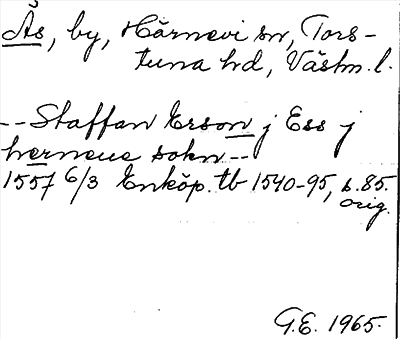 Äs, by, Härnevi sn, Tors-
tuna hd, Västm. l.
--Staffan Erson j Ess j
herneue sokn--
1557 6/3 Enköp. tb 1540-95, s. 85.
orig.
G.E. 1965.